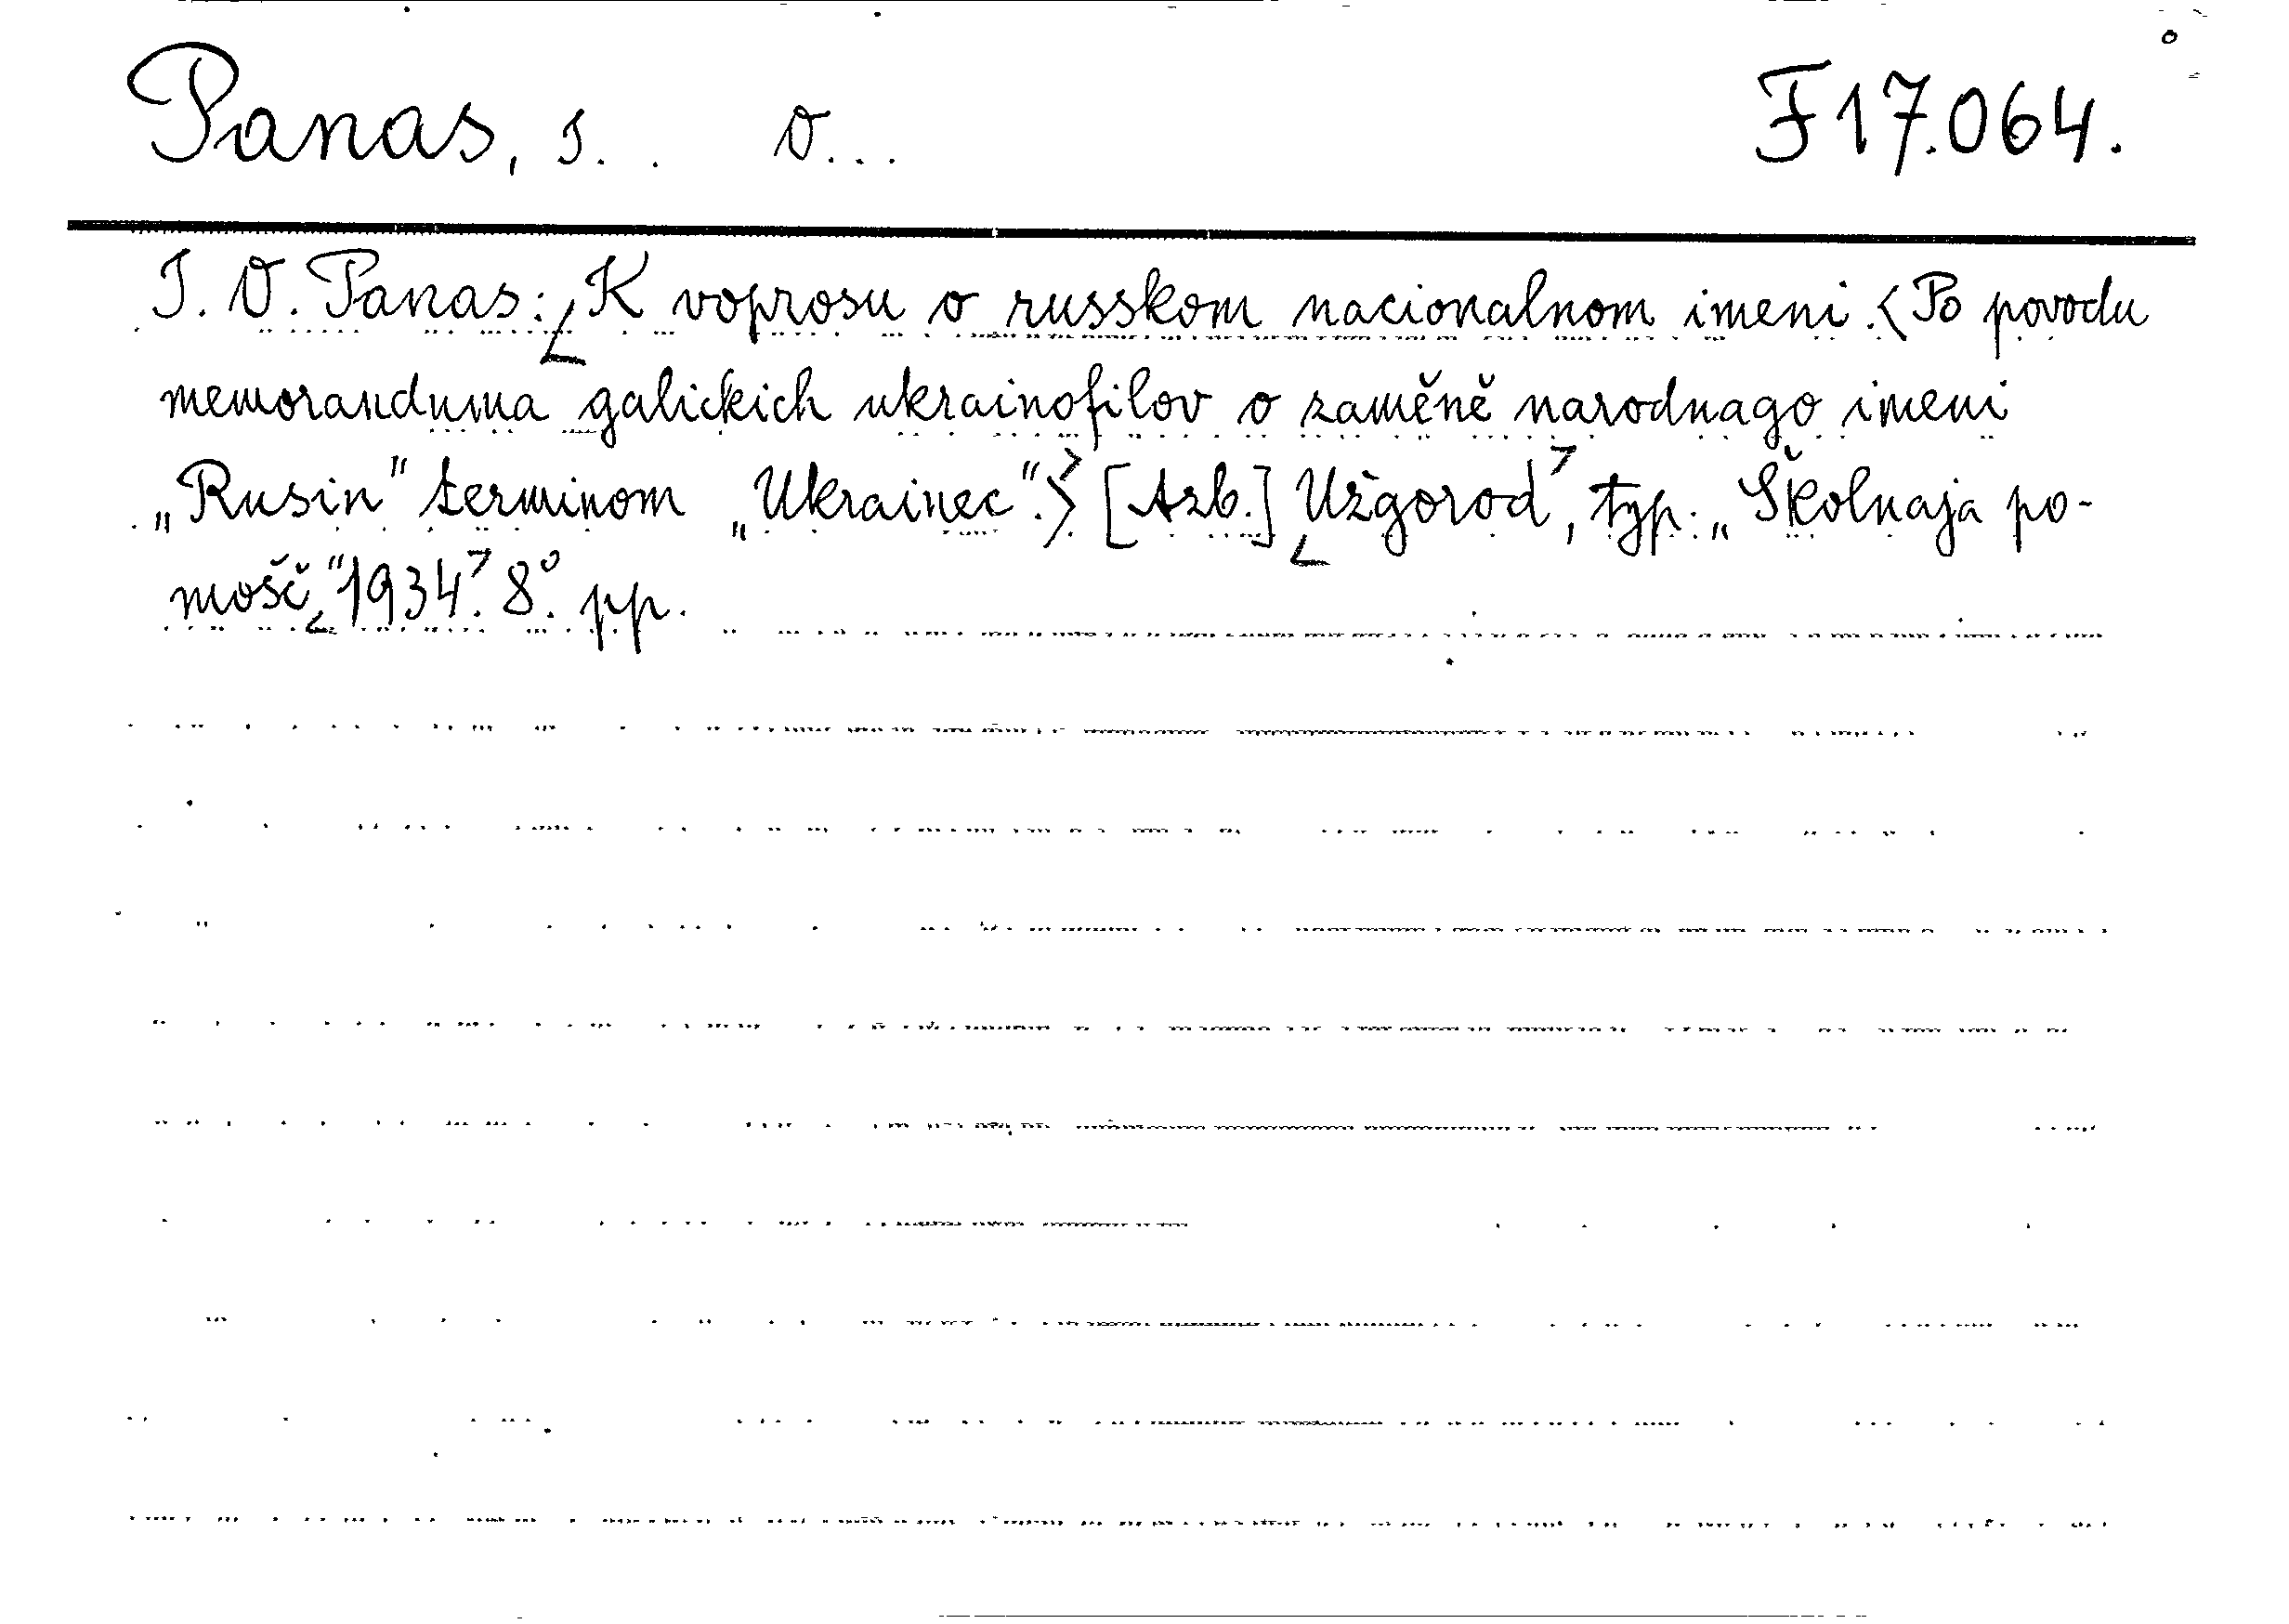 Panas, I. . O... F 17.064.
I. O. Panas: K voprosu o russkom nacionalnom imeni. <Po povodu
memoranduma galickich ukrainofilov o zaměně narodnago imeni
„Rusin" terminom „Ukrainec".> [Azb.] Užgorod, typ. „Školnaja po-
mošč," 1934. 8°. pp.